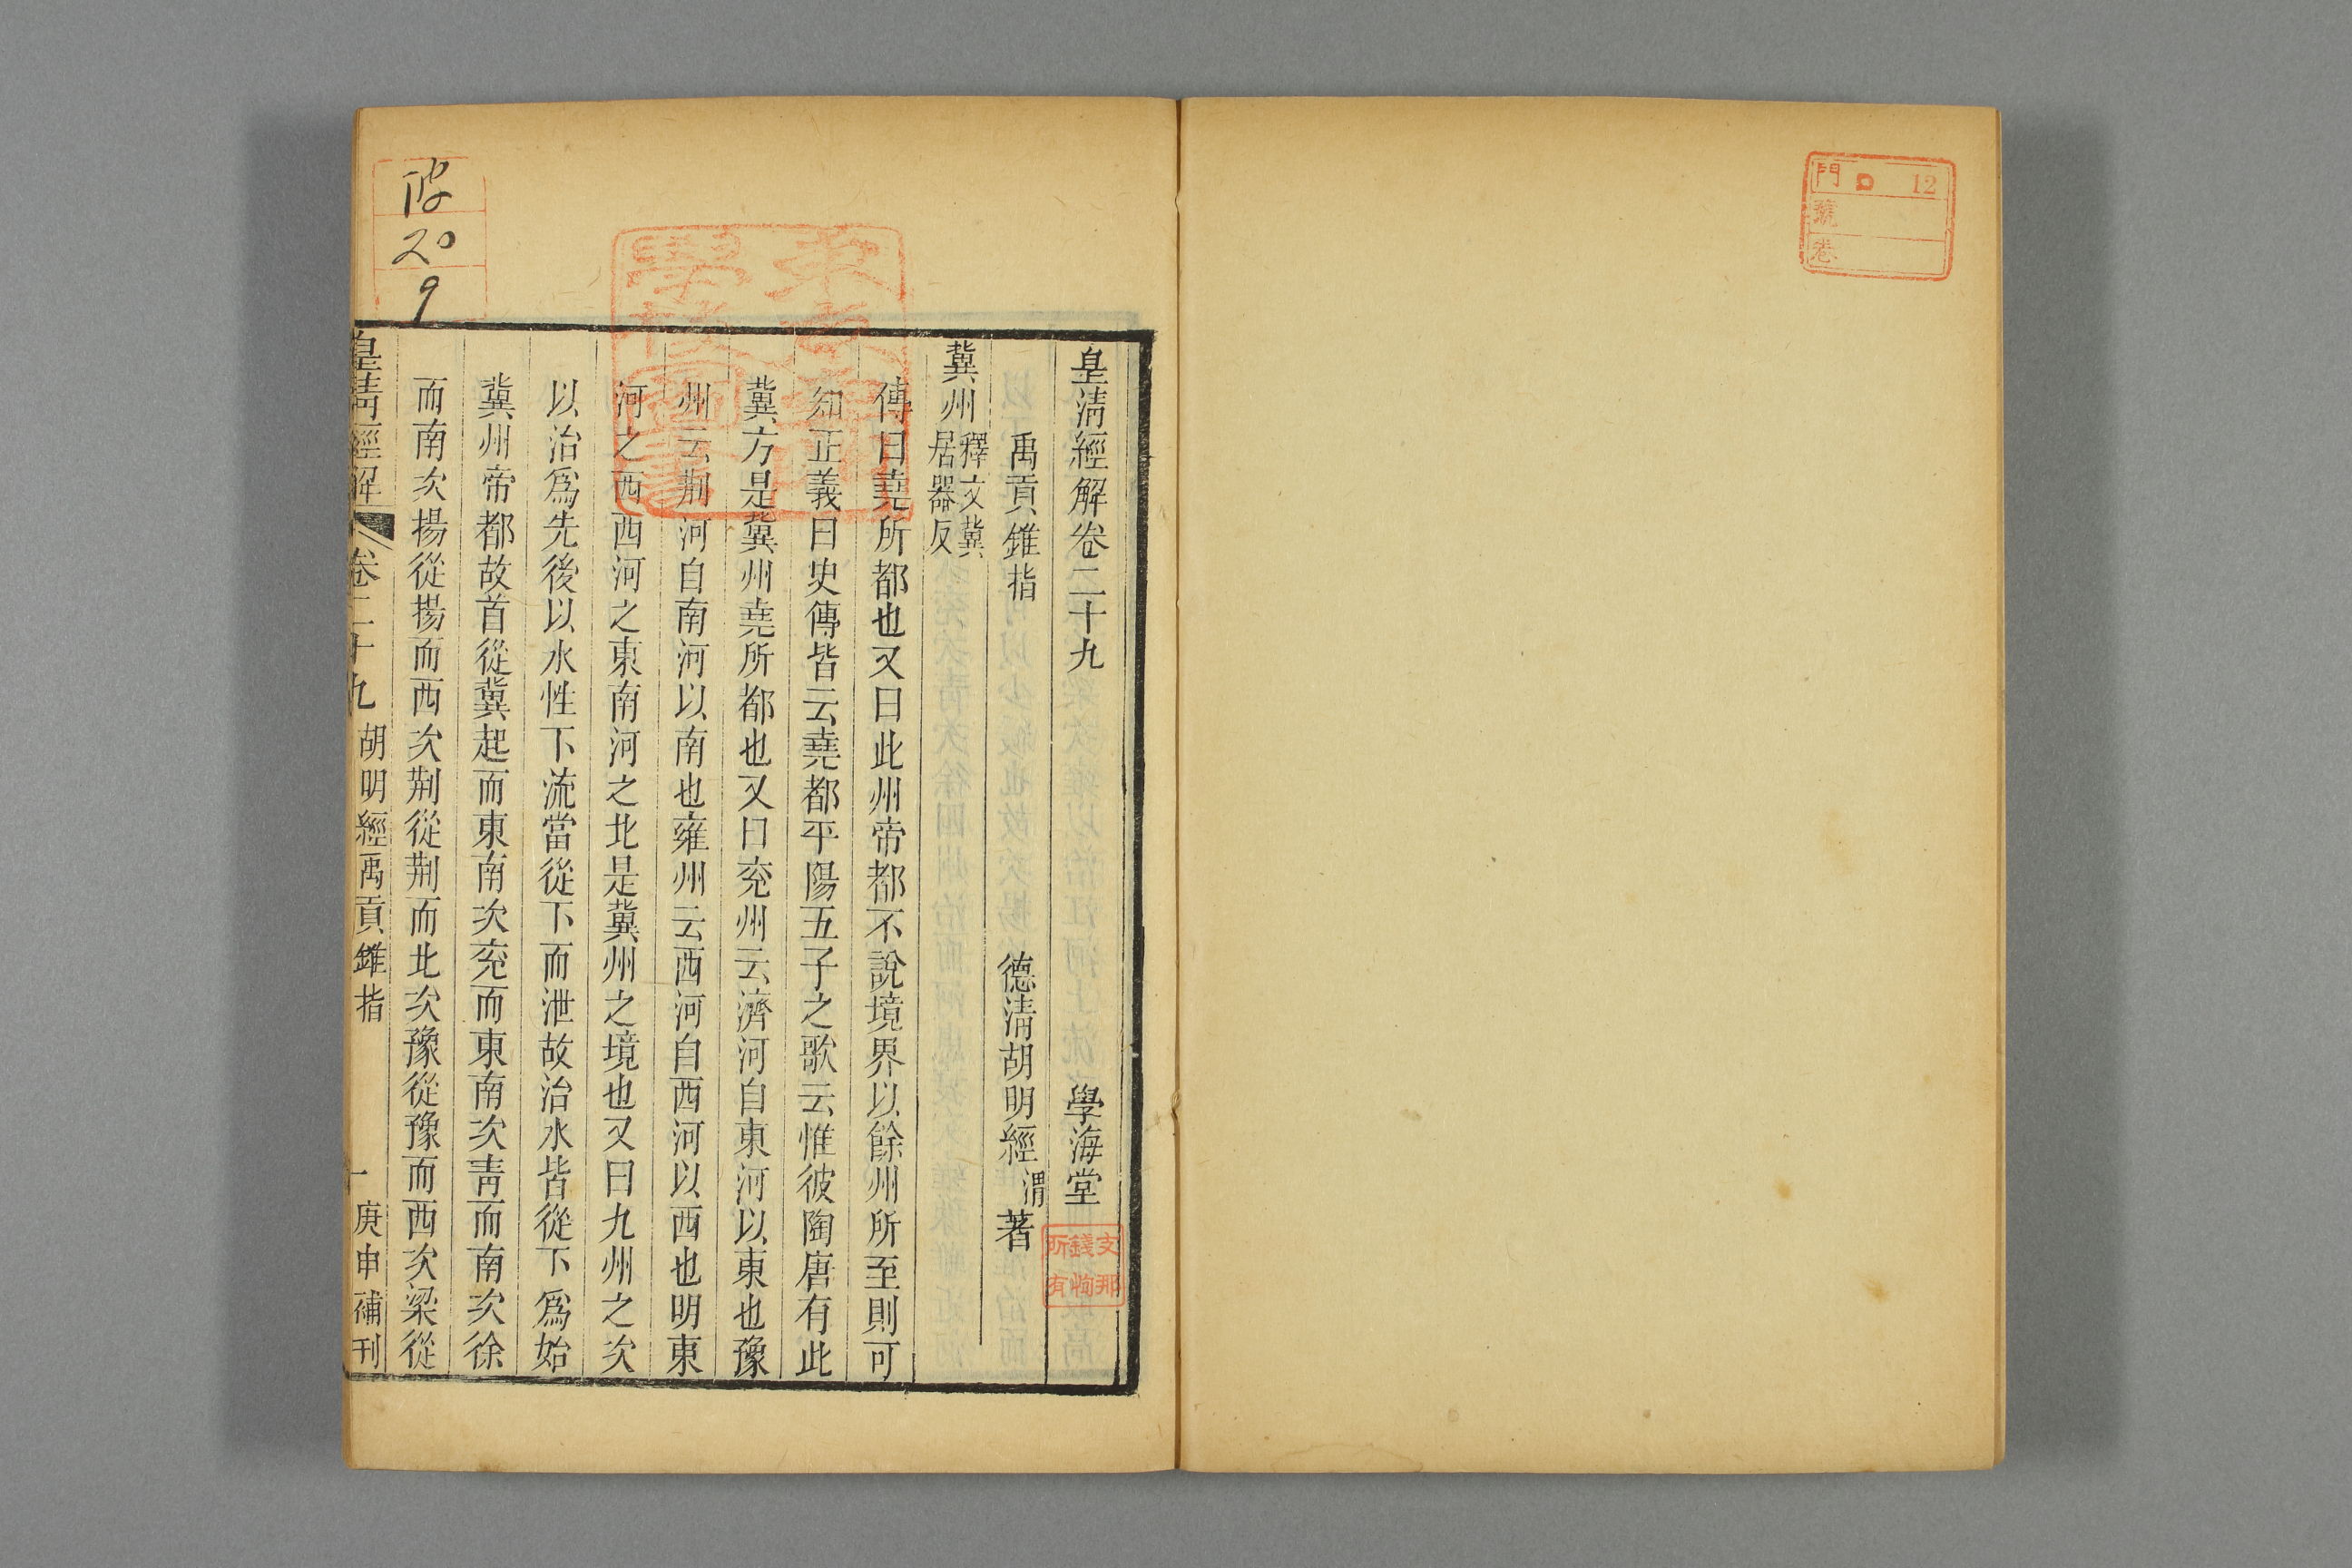 門 12
號
卷
皇淸經解卷二十九 學海堂
禹貢錐指 德淸胡明經渭著
冀州釋文冀居器反
傳曰堯所都也又曰此州帝都不說境界以餘州所至則可
知正義曰史傳皆云堯都平陽五子之歌云惟彼陶唐有此
冀方是冀州堯所都也又曰兖州云濟河自東河以東也豫
州云荆河自南河以南也雍州云西河自西河以西也明東
河之西西河之東南河之北是冀州之境也又曰九州之次
以治爲先後以水性下流當從下而泄故治水皆從下爲始
冀州帝都故首從冀起而東南次兖而東南次靑而南次徐
而南次揚從揚而西次荆從荆而北次豫從豫而西次梁從
皇淸經解 卷二十九 胡明經禹貢錐指 一 庚申補刊
支那
錢恂
所有
20
9